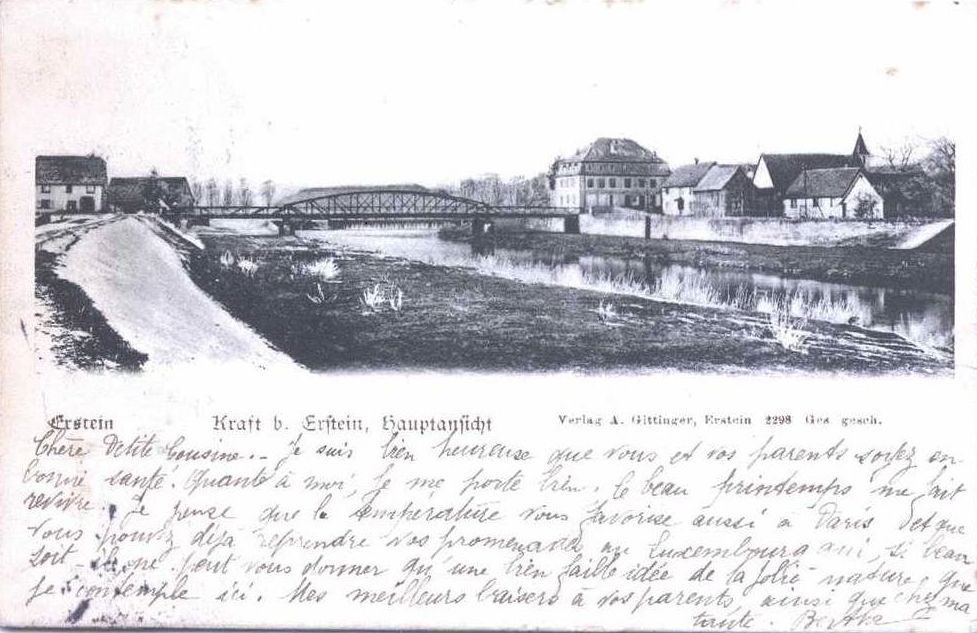 Erstein Kraft b. Erstein, Hauptansicht Verlag A. Gittinger, Erstein 2298 Ges. gesch.
Chère Petite Cousine.. Je suis bien heureuse que vous et vos parents soyez en
bonne santé. Quante à moi, je me porte bien. Ce beau printemps me fait
revivre. Je pense que la température vous favorise aussi à Paris et que
vous pouvez déjà reprendre vos promenades au Luxembourg qui, si beau
soit-il ne peut vous donner qu'une bien faible idée de la jolie nature que
je contemple ici. Mes meilleurs baisers à vos parents, ainsi que chez ma
tante. Berthe